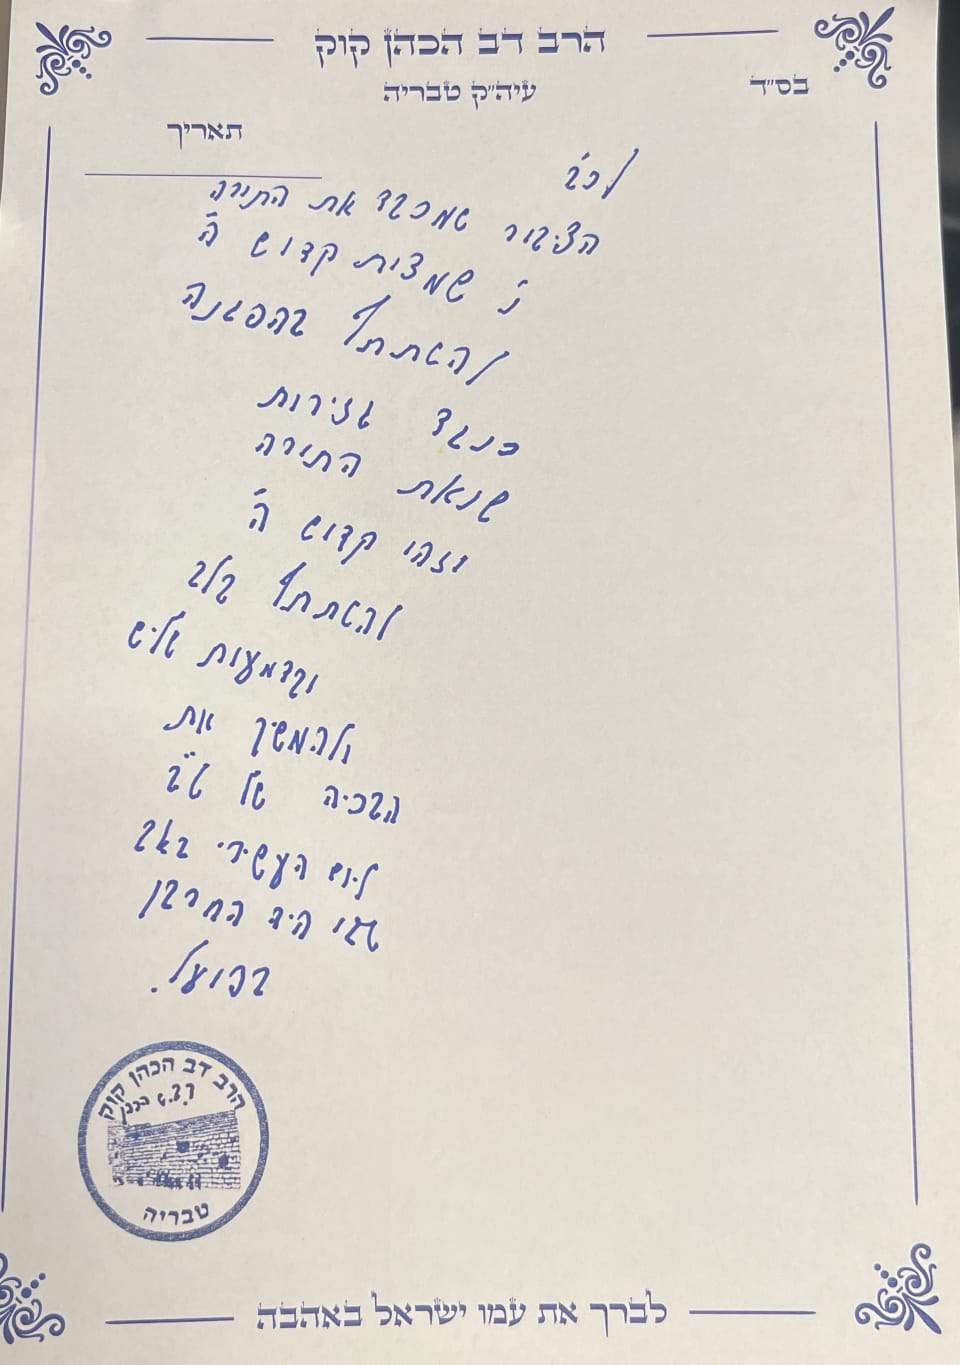 הרב דב הכהן קוק
בס״ד
עיה״ק טבריה
תאריך
לכ'
הציבור שמכבד את התורה
שמצות קדוש ה'
להשתתף בהפגנה
כנגד גזירות
שנאת התורה
וזהו קדוש ה'
להשתתף בלב
ובדמעות שליש
ולהמשיך את
הבכיה של ט"ב
ליום העשירי באב
שבו היה החורבן
בפועל.
הרב דב הכהן קוק
טבריה
לברך את עמו ישראל באהבה